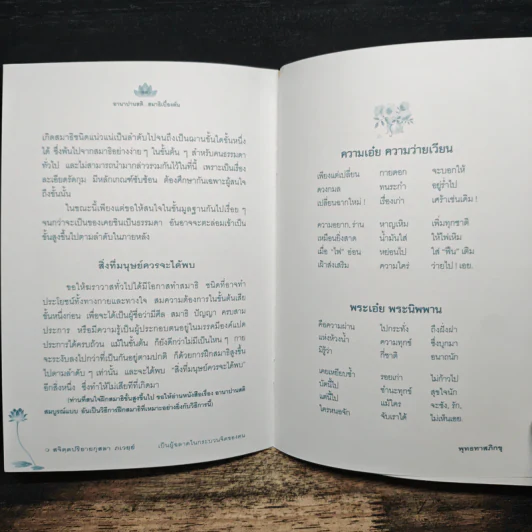 อานาปานสติ..สมาธิเบื้องต้น
เกิดสมาธิชนิดแน่วแน่เป็นลำดับไปจนถึงเป็นฌานขั้นใดขั้นหนึ่ง
ได้ ซึ่งพ้นไปจากสมาธิอย่างง่าย ๆ ในขั้นต้น ๆ สำหรับคนธรรมดา
ทั่วไป และไม่สามารถนำมากล่าวรวมกันไว้ในที่นี้ เพราะเป็นเรื่อง
ละเอียดรัดกุม มีหลักเกณฑ์ซับซ้อน ต้องศึกษากันเฉพาะผู้สนใจ
ถึงขั้นนั้น
ในขณะนี้เพียงแต่ขอให้สนใจในขั้นมูลฐานกันไปเรื่อย ๆ
จนกว่าจะเป็นของเคยชินเป็นธรรมดา อันอาจจะตะล่อมเข้าเป็น
ขั้นสูงขึ้นไปตามลำดับในภายหลัง
สิ่งที่มนุษย์ควรจะได้พบ
ขอให้ฆราวาสทั่วไปได้มีโอกาสทำสมาธิ ชนิดที่อาจทำ
ประโยชน์ทั้งทางกายและทางใจ สมความต้องการในขั้นต้นเสีย
ชั้นหนึ่งก่อน เพื่อจะได้เป็นผู้ชื่อว่ามีศีล สมาธิ ปัญญา ครบสาม
ประการ หรือมีความรู้เป็นผู้ประกอบตนอยู่ในมรรคมีองค์แปด
ประการได้ครบถ้วน แม้ในขั้นต้น ก็ยังดีกว่าไม่มีเป็นไหน ๆ กาย
จะระงับลงไปกว่าที่เป็นกันอยู่ตามปกติ ก็ด้วยการฝึกสมาธิสูงขึ้น
ไปตามลำดับ ๆ เท่านั้น และจะได้พบ “สิ่งที่มนุษย์ควรจะได้พบ”
อีกสิ่งหนึ่ง ซึ่งทำให้ไม่เสียทีที่เกิดมา
(ท่านที่สนใจฝึกสมาธิขั้นสูงขึ้นไป ขอให้อ่านหนังสือเรื่อง อานาปานสติ
สมบูรณ์แบบ อันเป็นวิธีการฝึกสมาธิที่เหมาะอย่างยิ่งกับวิธีการนี้)
เป็นผู้ฉลาดในกระบวนจิตของตน
ความเอ๋ย ความว่ายเวียน
เพียงแต่เปลี่ยน กายตอก จะบอกให้
ดวงกมล ทนระกำ อยู่ร่ำไป
เปลี่ยนฉากใหม่ ! เรื่องเก่า เคร้าเช่นเดิม !
ความอยาก, ร่าน หาญเหิม เพิ่มทุกชาติ
เหมือนยิ่งสาด น้ำมันใส่ ให้ไฟเหิม
เมื่อ “ไฟ” อ่อน หย่อนไป ใส่ “ฟืน” เติม
เฝ้าส่งเสริม ความใคร่ ว่ายไป ! เอย.
พระเอ๋ย พระนิพพาน
คือความผ่าน ไปกระทั่ง ถึงฝั่งฝา
แห่งห้วงน้ำ ความทุกข์ ซึ่งบุกมา
มิรู้ว่า กี่ชาติ อนาถนัก
เคยเหยียบซ้ำ รอยเก่า ไม่ก้าวไป
บัดนี้ไป ชำนะทุกข์ สุขใจนัก
แต่นี้ไป แม้ใคร จะชัง, รัก,
ใครหนอจัก จับเราได้ ไม่เห็นเอย.
พุทธทาสภิกขุ